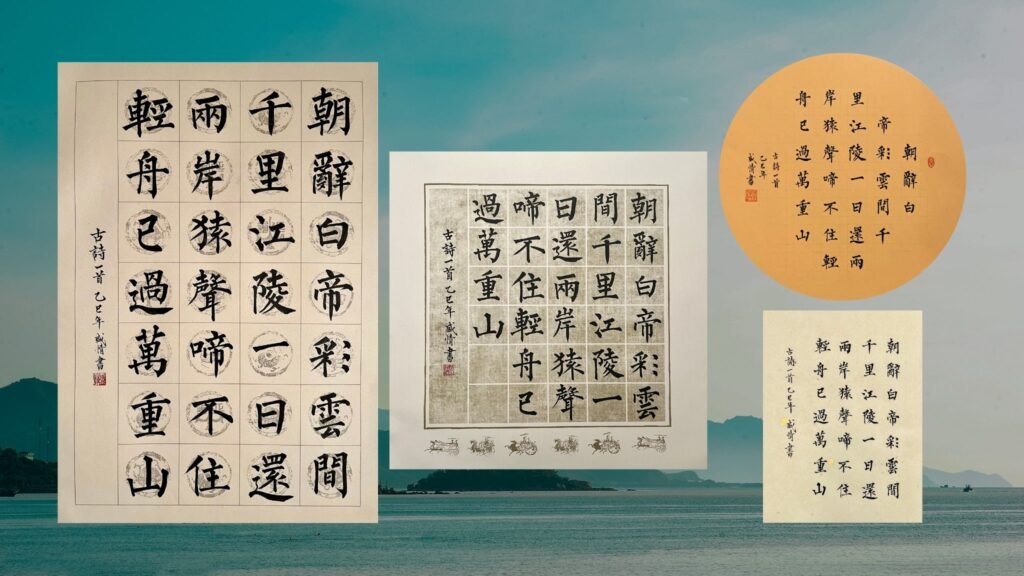 朝辭白帝彩雲間
千里江陵一日還
兩岸猿聲啼不住
輕舟已過萬重山
古詩一首 乙巳年 書
朝辭白帝彩雲
間千里江陵一
日還兩岸猿聲
啼不住輕舟已
過萬重山
古詩一首 乙巳年 書
朝辭白
帝彩雲間千
里江陵一日還兩
岸猿聲啼不住輕
舟已過萬重山
古詩一首
乙巳年
書
朝辭白帝彩雲間
千里江陵一日還
兩岸猿聲啼不住
輕舟已過萬重山
古詩一首 乙巳年 書